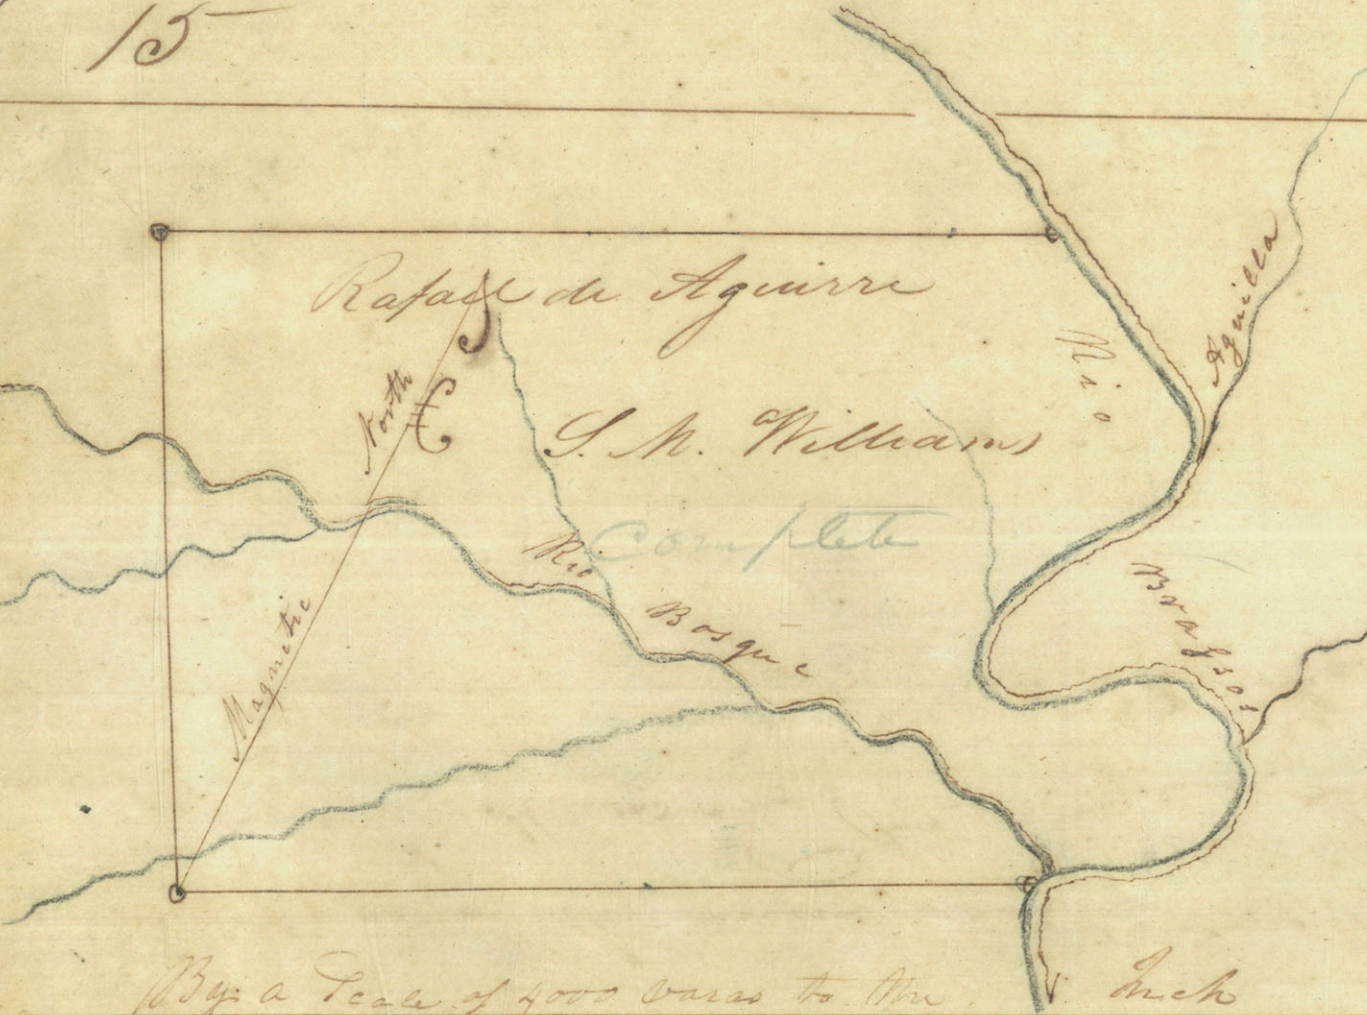 15
Rafael de Aguirre
S. M. Williams
Complete
Magnetic North
Rio Bosque
Rio Brassos
Aquilla
By a Scale of 4000 varas to the Inch